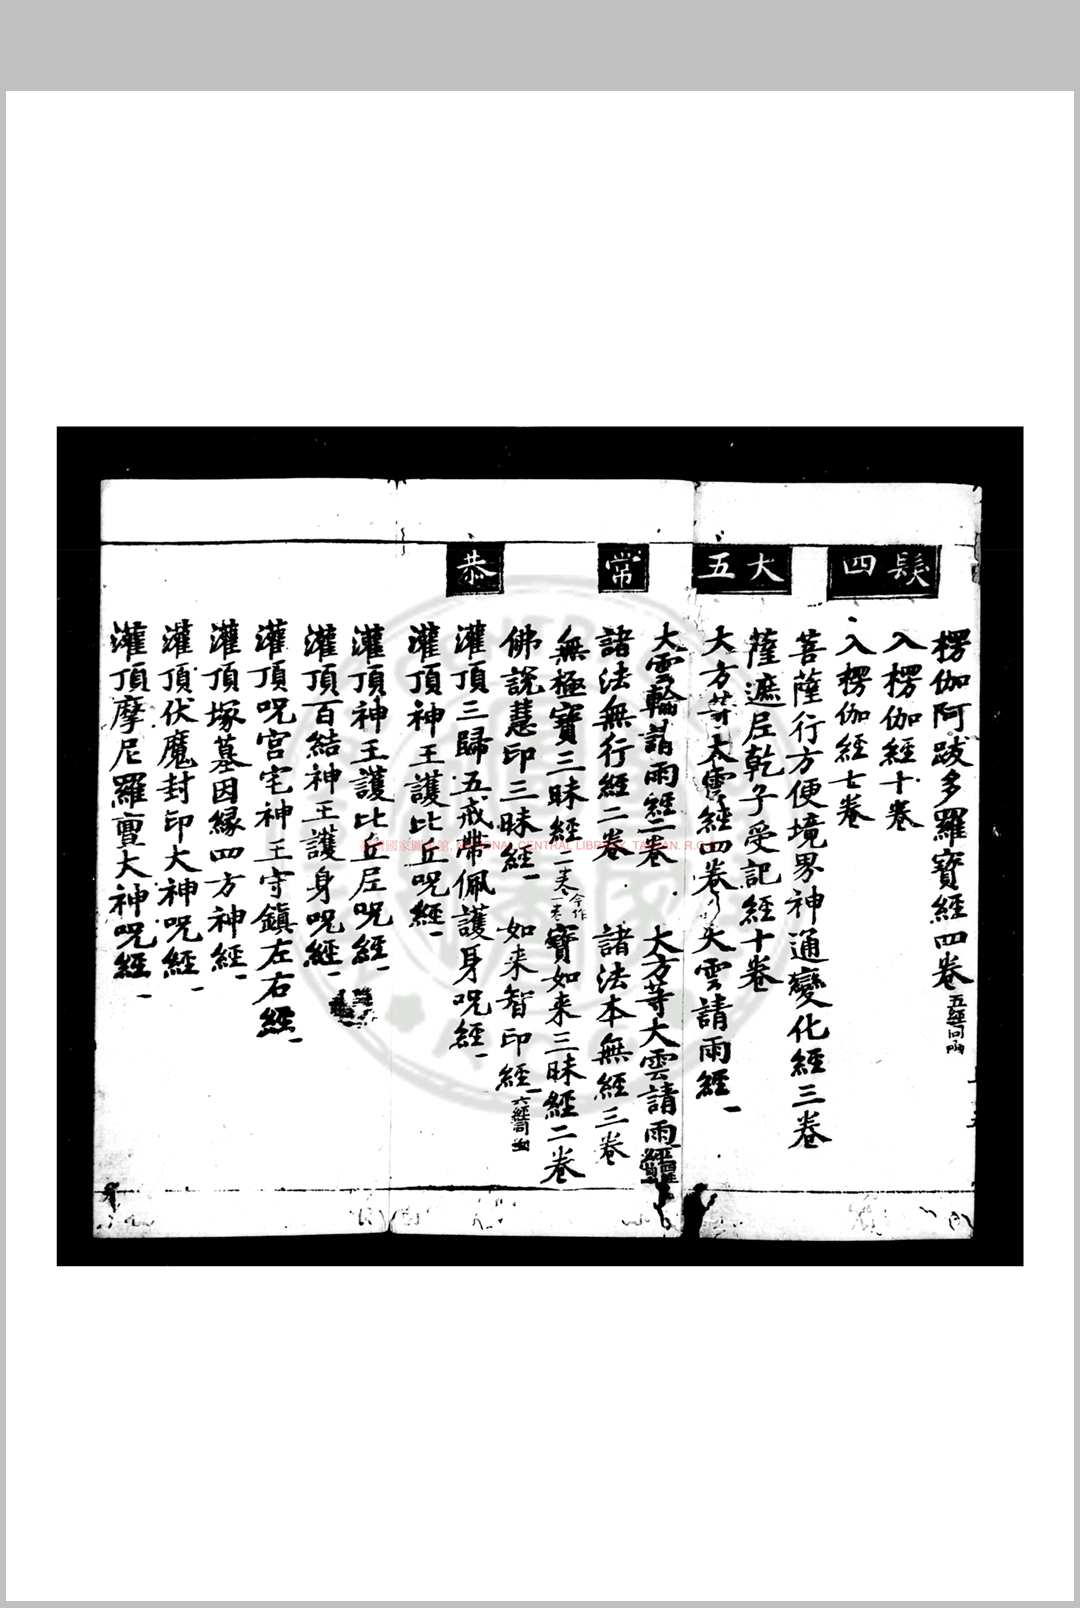 髮四
大五
常
恭
楞伽阿跋多羅寶經四卷 五經同函
入楞伽經十卷
入楞伽經七卷
菩薩行方便境界神通變化經三卷
薩遮尼乾子受記經十卷
大方等大雲經四卷 大雲請雨經一
大雲輪請雨經二卷 大方等大雲請雨經
諸法無行經二卷 諸法本無經三卷
無極寶三昧經二卷今作一卷 寶如来三昧經二卷
佛說慧印三昧經一 如来智印經一 六經同函
灌頂三歸五戒帶佩護身呪經一
灌頂神王護比丘呪經一
灌頂神王護比丘尼呪經一
灌頂百結神王護身呪經一
灌頂呪宫宅神王守鎮左右經一
灌頂塚墓因緣四方神經一
灌頂伏魔封印大神呪經一
灌頂摩尼羅亶大神呪經一
國家圖書館, NATIONAL CENTRAL LIBRARY, TAIWAN, R.O.C